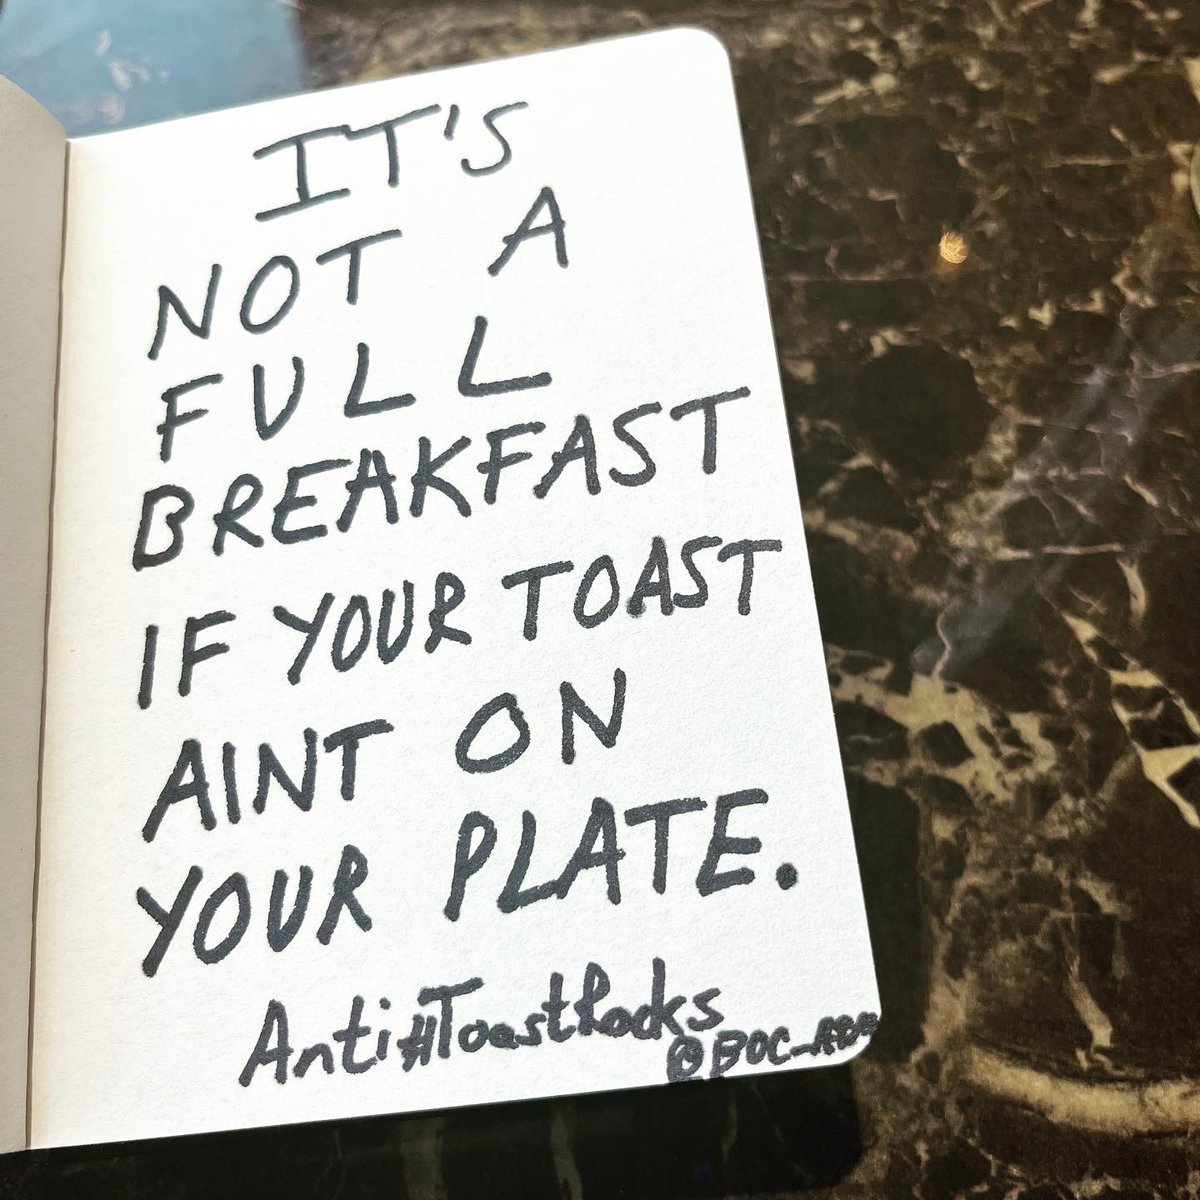 IT'S
NOT A
FULL
BREAKFAST
IF YOUR TOAST
AINT ON
YOUR PLATE.
Anti#ToastRacks